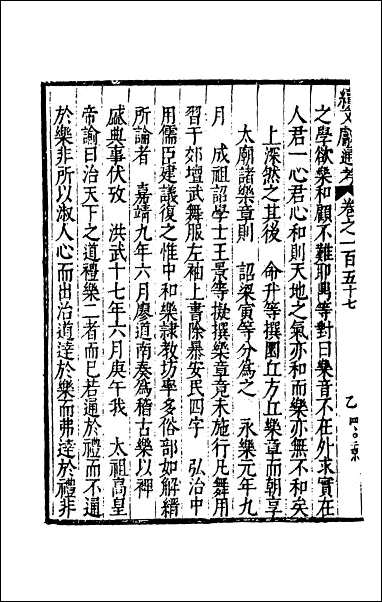 續文獻通考 卷之一百五十七
之學欲樂和顧不難耶興等對曰樂音不在外求實在
人君一心君心和則天地之氣亦和而樂亦無不和矣
上深然之其後 命升等撰圜丘方丘樂章而朝享
太廟諸樂章則 詔梁寅等分為之 永樂元年九
月 成祖詔學士王景等擬撰樂章竟未施行凡舞用
習于郊壇武舞服左袖上書除暴安民四字 弘治中
用儒臣建議復之惟中和樂隸教坊率多俗部如解縉
所論者 嘉靖九年六月廖道南奏為稽古樂以裨
盛典事伏攷 洪武十七年六月庚午我 太祖高皇
帝諭曰治天下之道禮樂二者而已若通於禮而不通
於樂非所以淑人心而出治道達於樂而弗達於禮非